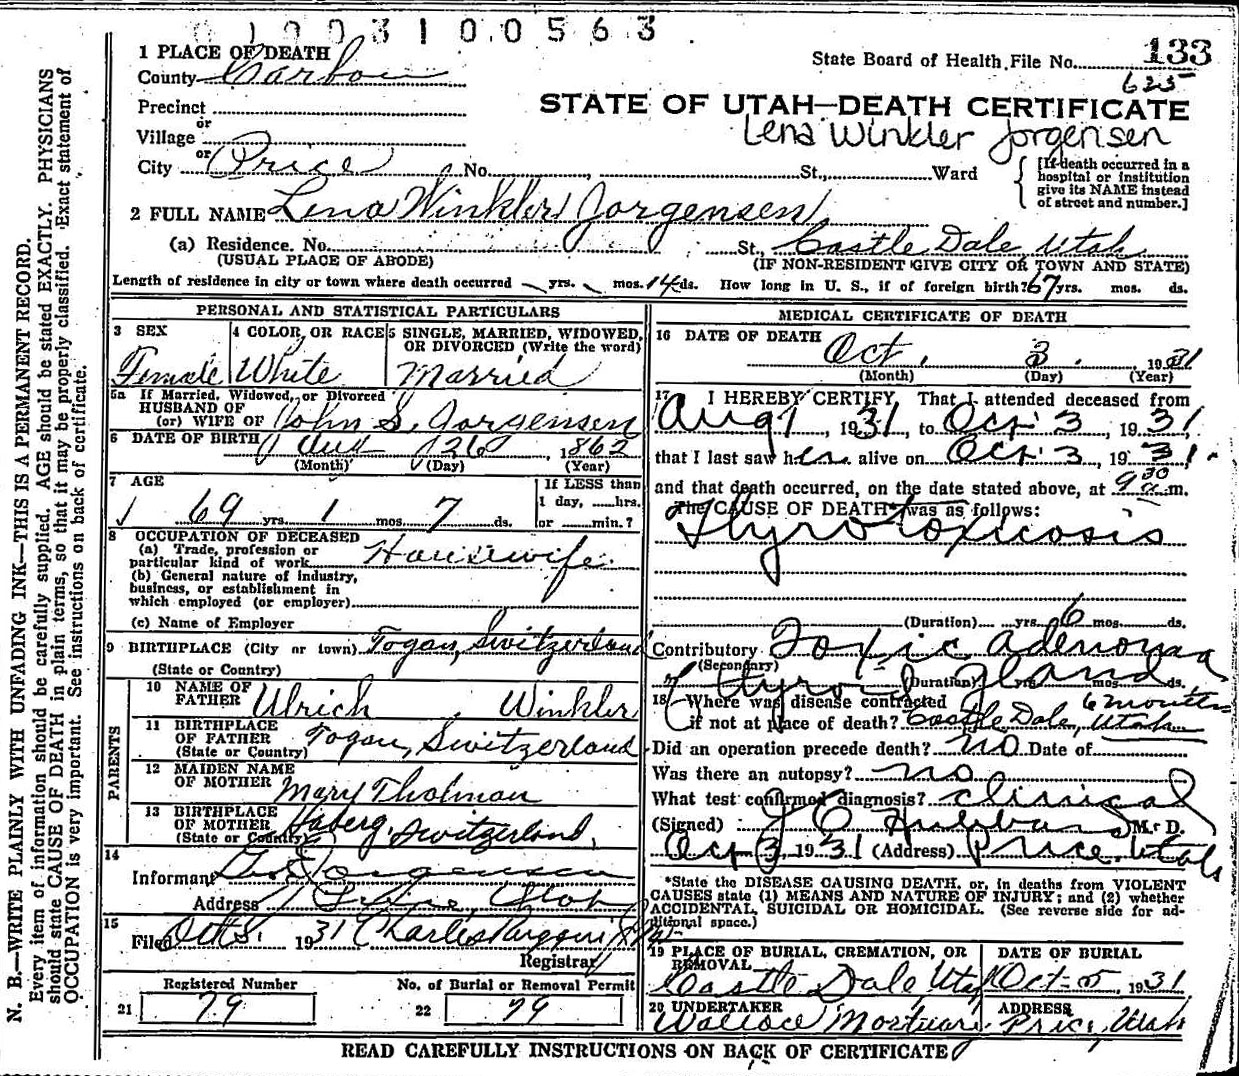 0 1 0 0 3 1 0 0 5 6 3
133
1 PLACE OF DEATH
County Carbon
State Board of Health File No.
625
Precinct
or
Village
or
City Price No. St., Ward
STATE OF UTAH—DEATH CERTIFICATE
Lena Winkler Jorgensen
[If death occurred in a
hospital or institution
give its NAME instead
of street and number.]
2 FULL NAME Lena Winkler Jorgensen
(a) Residence. No. St., Castle Dale, Utah
(USUAL PLACE OF ABODE) (IF NON-RESIDENT GIVE CITY OR TOWN AND STATE)
Length of residence in city or town where death occurred yrs. mos. 14 ds. How long in U. S., if of foreign birth? 67 yrs. mos. ds.
PERSONAL AND STATISTICAL PARTICULARS
3 SEX
Female
4 COLOR OR RACE
White
5 SINGLE, MARRIED, WIDOWED,
OR DIVORCED (Write the word)
Married
5a If Married, Widowed, or Divorced
HUSBAND OF
(or) WIFE OF John S. Jorgensen
6 DATE OF BIRTH Aug 26, 1862
(Month) (Day) (Year)
7 AGE
69 yrs. 1 mos. 7 ds.
If LESS than
1 day, hrs.
or min.?
8 OCCUPATION OF DECEASED
(a) Trade, profession or
particular kind of work Housewife
(b) General nature of industry,
business, or establishment in
which employed (or employer)
(c) Name of Employer
9 BIRTHPLACE (City or town) Togan, Switzerland
(State or Country)
PARENTS
10 NAME OF
FATHER Ulrich Winkler
11 BIRTHPLACE
OF FATHER Togan, Switzerland
(State or Country)
12 MAIDEN NAME
OF MOTHER Mary Tholman
13 BIRTHPLACE
OF MOTHER Haberg, Switzerland,
(State or Country)
14
Informant Jorgensen
Address Price, Utah
15
Filed Oct 5. 1931 Charles
Registrar
Registered Number
21 79
No. of Burial or Removal Permit
22 79
MEDICAL CERTIFICATE OF DEATH
16 DATE OF DEATH
Oct. 3. 1931
(Month) (Day) (Year)
17 I HEREBY CERTIFY, That I attended deceased from
Aug 1, 1931, to Oct 3, 1931,
that I last saw her alive on Oct 3, 1931.
and that death occurred, on the date stated above, at 9 30 a m.
The CAUSE OF DEATH* was as follows:
Thyrotoxicosis
(Duration) yrs. 6 mos. ds.
Contributory Toxic adenoma
(Secondary)
of thyroid gland
(Duration) yrs. mos. ds.
6 months
18 Where was disease contracted
if not at place of death? Castle Dale, Utah
Did an operation precede death? no Date of
Was there an autopsy? no
What test confirmed diagnosis? clinical
(Signed) J C Hubbard M. D.
Oct 3 1931 (Address) Price, Utah
*State the DISEASE CAUSING DEATH, or, in deaths from VIOLENT
CAUSES state (1) MEANS AND NATURE OF INJURY; and (2) whether
ACCIDENTAL, SUICIDAL OR HOMICIDAL. (See reverse side for ad-
ditional space.)
19 PLACE OF BURIAL, CREMATION, OR
REMOVAL
Castle Dale, Utah
DATE OF BURIAL
Oct 5, 1931
20 UNDERTAKER
Wallace Mortuary
ADDRESS
Price, Utah
READ CAREFULLY INSTRUCTIONS ON BACK OF CERTIFICATE
N. B.—WRITE PLAINLY WITH UNFADING INK—THIS IS A PERMANENT RECORD.
Every item of information should be carefully supplied. AGE should be stated EXACTLY. PHYSICIANS
should state CAUSE OF DEATH in plain terms, so that it may be properly classified. Exact statement of
OCCUPATION is very important. See instructions on back of certificate.